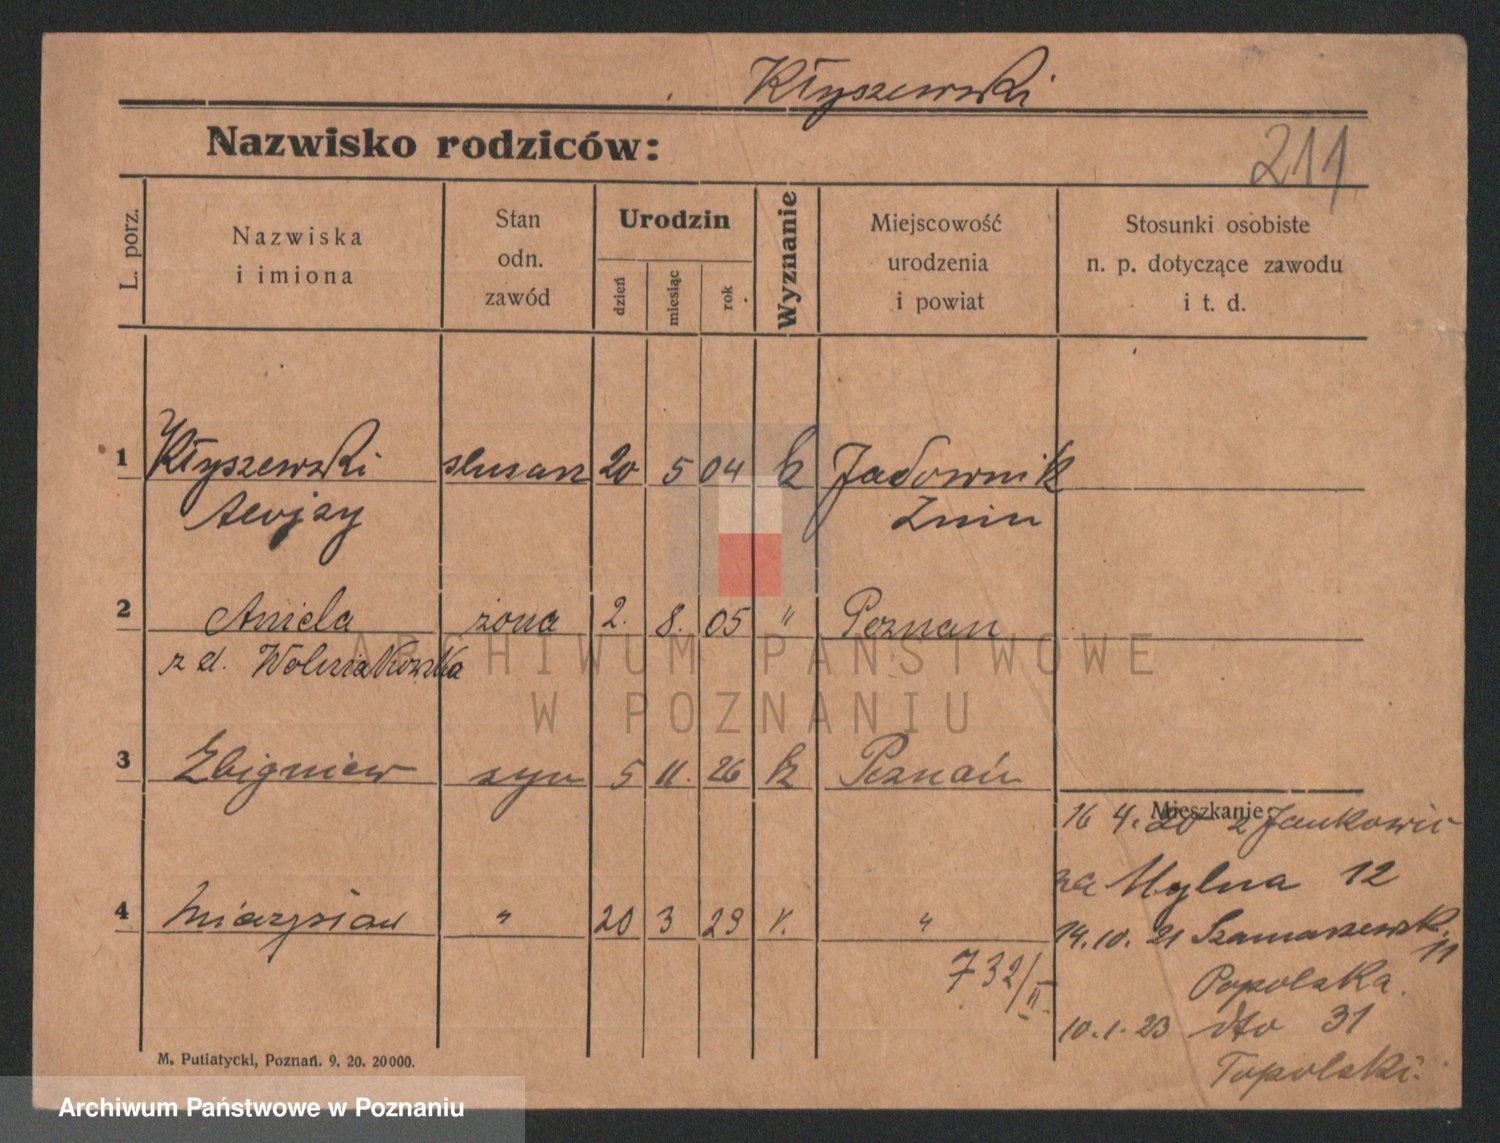 Kłyszewski
Nazwisko rodziców:
211
L. porz.
Nazwiska
i imiona
Stan
odn.
zawód
Urodzin
dzień
miesiąc
rok
Wyznanie
Miejscowość
urodzenia
i powiat
Stosunki osobiste
n. p. dotyczące zawodu
i t. d.
1 Kłyszewski 20 5 04 k Jadownik
Żnin
2 Aniela żona 2. 8. 05 " Poznan
z d.
3 Zbigniew syn 5 11. 26 k Poznań
Mieszkanie:
16 4. 20 z
na Mylna 12
4 " 20 3 29 "
14. 10. 21 Szamarzewsk. 11
732/II.
10. 1. 23 dto 31
M. Putiatycki, Poznań. 9. 20. 20000.
ARCHIWUM PAŃSTWOWE
W POZNANIU
Archiwum Państwowe w Poznaniu